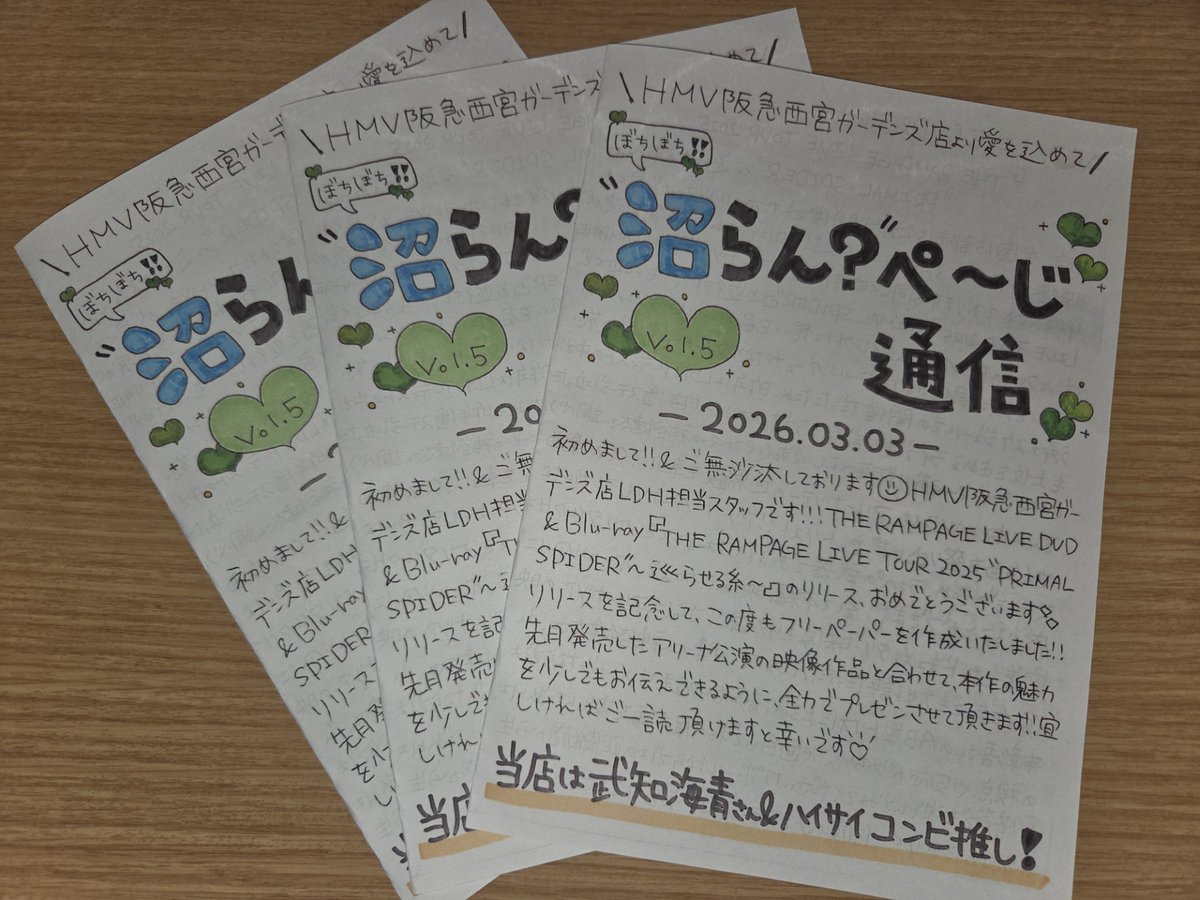 \HMV阪急西宮ガーデンズ店より愛を込めて/
ぼちぼち!!
"沼らん?"ぺ〜じ
通信
Vol.5
－2026.03.03－
初めまして!!& ご無沙汰しております☺HMV阪急西宮ガー
デンズ店LDH担当スタッフです!!!THE RAMPAGE LIVE DVD
& Blu-ray『THE RAMPAGE LIVE TOUR 2025"PRIMAL
SPIDER"〜巡らせる糸〜』のリリース、おめでとうございます
リリースを記念して、この度もフリーペーパーを作成いたしました!!
先月発売したアリーナ公演の映像作品と合わせて、本作の魅力
を少しでもお伝えできるように、全力でプレゼンさせて頂きます!!宜
しければご一読頂けますと幸いです♡
当店は武知海青さん&ハイサイコンビ推し!
\HMV阪急西宮ガーデンズ
ぼちぼち!!
"沼らん?
Vol.5
－20
初めまして!!& ご無
デンズ店LDH担当
& Blu-ray『TH
SPIDER"〜巡ら
リリースを記
先月発売
を少しで
しけれ
当店
を込めて/
\HMV阪急西宮ガーデ
ぼちぼち!!
"沼らん
Vol.5
初めまして!!&
デンズ店LDH
& Blu-ray
SPIDER
リリース
先月発
を少し
愛を込めて/